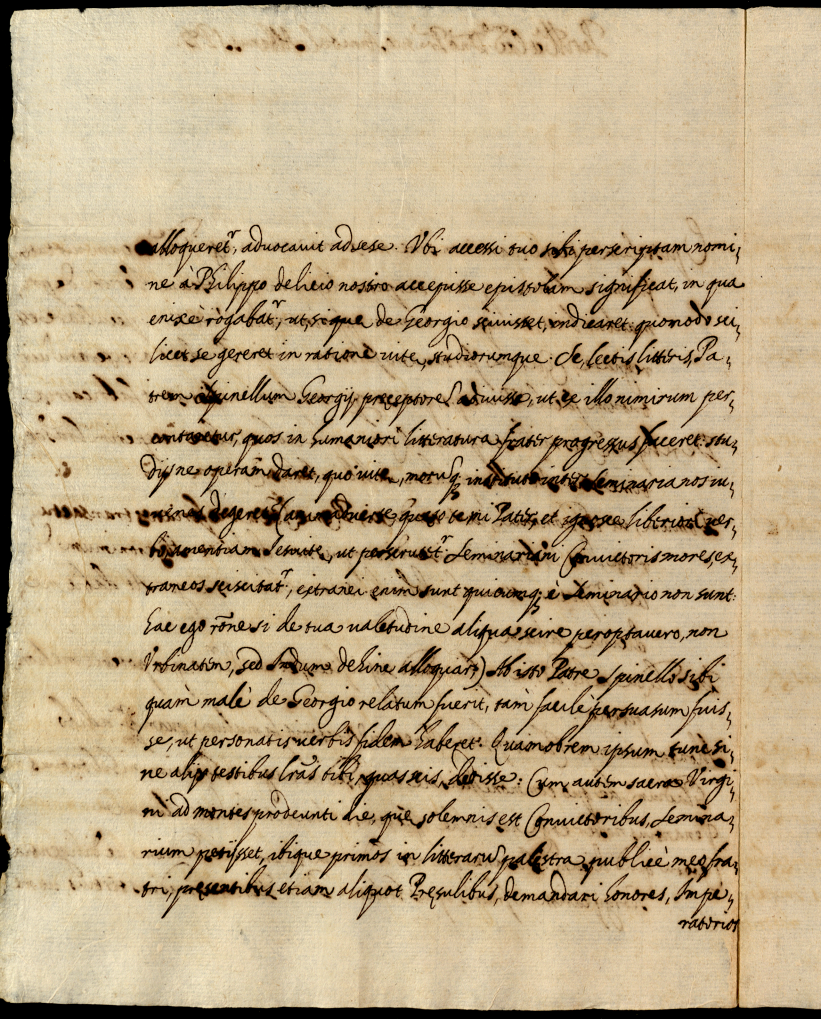 alloqueret^r, advocavit ad sese. Ubi accessi tuo sibi perscriptam nomi-
ne à Philippo delicio nostro accepisse epistolam significat, in qua
enixè rogabat^r, ut, si que de Georgio scivisset, indicaret: quomodo sci-
licet se gereret in ratione vite, studiorumque. Se, lectis litteris, Pa-
trem Spinellum Georgij preceptorē adivisse, ut ex illo nimirum per-
contaretur, quos in humaniori litteratura frater progressus faceret: stu-
dijs ne operam daret, quo vite, morumq; instituto inter Seminaria nos iu-
venes degeret (animadverte queso te mi Pater, et ignosce liberiori ver-
bo, amentiam Jesuite, ut perscrutet^r Seminarium Convictoris mores, ex-
traneos sciscitat^r, extranei enim sunt quicumq; è Seminario non sunt:
hac ego rōne si de tua valetudine aliqua scire peroptavero, non
Urbinatem, sed Indum dehinc alloquar) Ab isto Patre Spinello sibi
quàm malè de Georgio relatum fuerit, tàm facilè persuasum fuis-
se, ut personatis verbis fidem haberet. Quamobrem ipsum tunc si-
ne alijs testibus lr̄as tibi, quas scis, dedisse: Cum autem sacra Virgi-
ni ad montes prodeunti die, que solemnis est Convictoribus, Semina-
rium petijsset, ibique primos in litteraru palestra publicè meo fra-
tri, presentibus etiam aliquot Presulibus, demandari honores, Impe-
ratorios